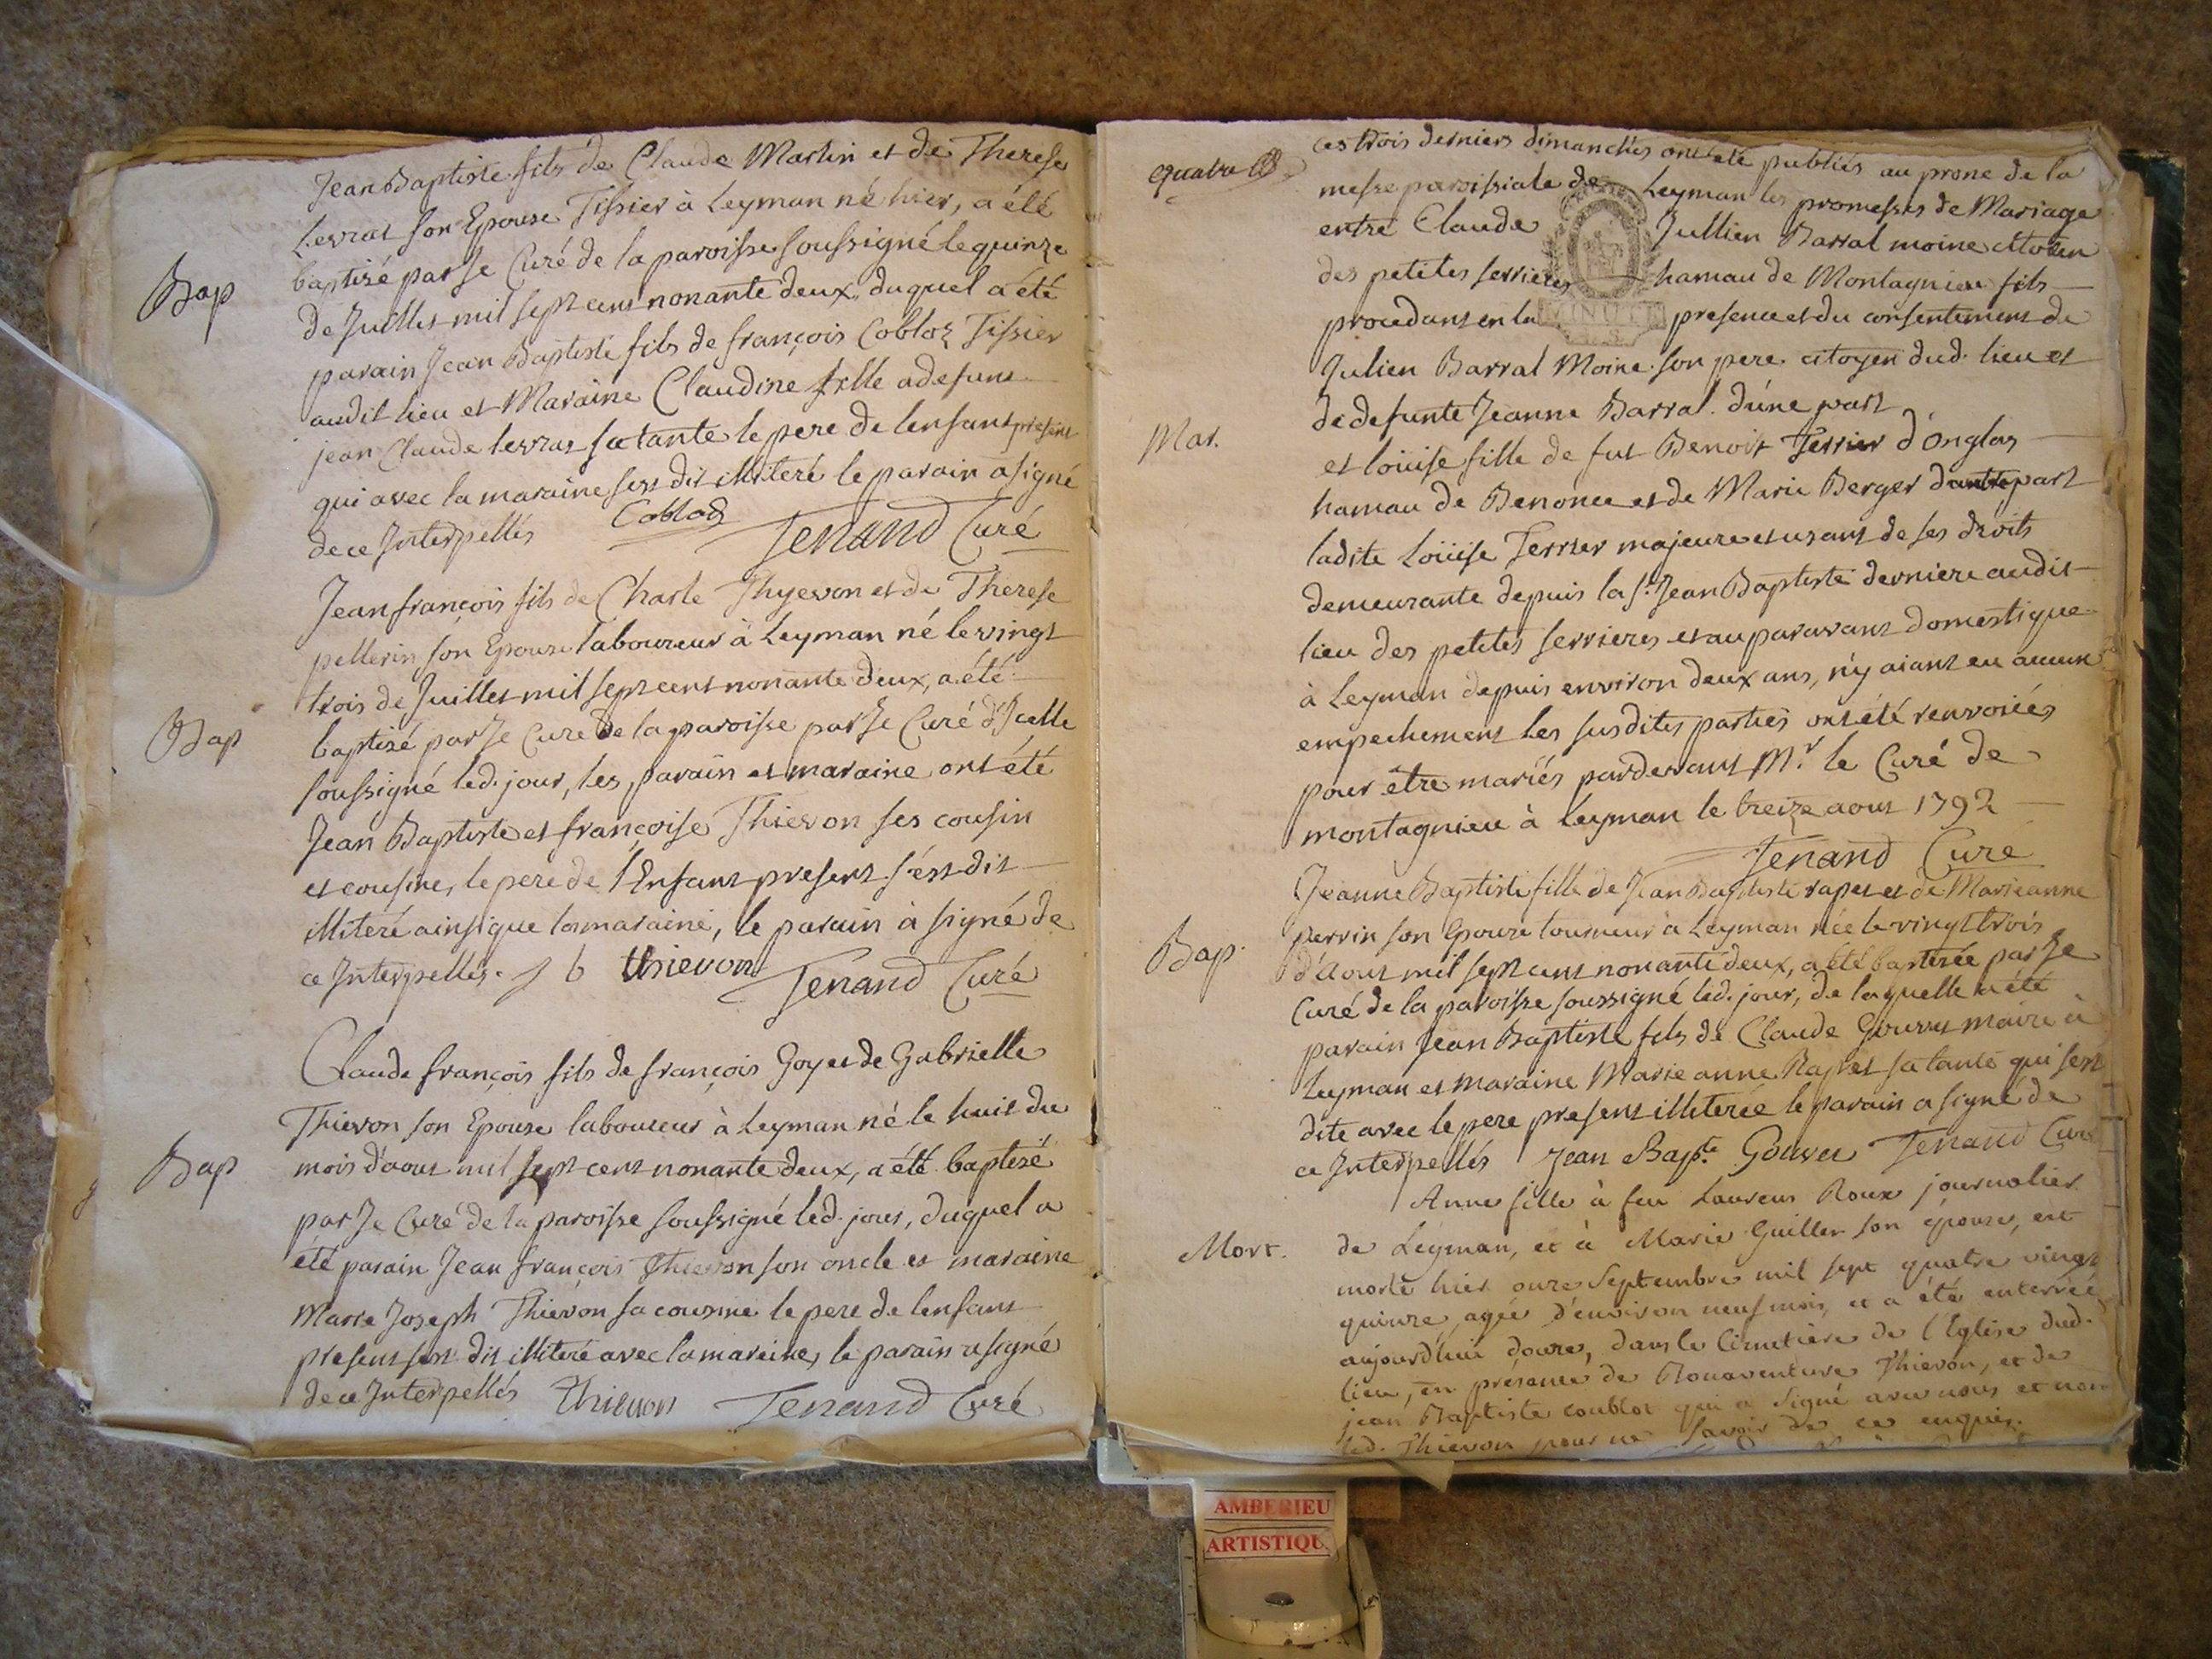 Jean Baptiste fils de Claude Martin et de Therese
Levrat son Epouse Tissier à Leyman né hier, a été
Bap
baptisé par Je Curé de la paroisse soussigné le quinze
de Juillet mil sept cent nonante deux, duquel a été
parain Jean Baptiste fils de françois Cobloz Tissier
audit lieu et Maraine Claudine fille a defunt
jean Claude levrat sa tante le pere de lenfant present
qui avec la maraine sest dit illiteré le parain a signé
de ce Interpellés Cobloz Tenand Curé
Jean françois fils de Charle Thyevon et de Therese
pellerin son Epouse laboureur à Leyman né le vingt
trois de Juillet mil sept cent nonante deux, a été
Bap
baptisé par Je Curé de la paroisse par Je Curé d'Icelle
soussigné led. jour, les parain et maraine ont été
Jean Baptiste et françoise Thievon ses cousin
et cousine, le pere de l'Enfant present s'est dit
illiteré ainsi que la maraine, le parain à signé de
ce Interpellés. J b thievon Tenand Curé
Claude françois fils de françois Goy et de Gabrielle
Thievon son Epouse laboureur à Leyman né le huit du
Bap
mois d'aout mil sept cent nonante deux, a été baptisé
par Je Curé de la paroisse soussigné led. jour, duquel a
été parain Jean françois Thievon son oncle et maraine
Marie Joseph Thievon sa cousine le pere de lenfant
present sest dit illiteré avec la maraine, le parain a signé
de ce Interpellés thievon Tenand Curé
quatre
ces trois derniers dimanches ont été publiés au prone de la
messe paroissiale de Leyman les promesses de Mariage
entre Claude Jullien Barral moine citoien
des petites serrieres hamau de Montagnieu fils
procedant en la presence et du consentement de
MINUTE
Julien Barral Moine son pere citoyen dud. lieu et
de defunte Jeanne Barral d'une part
Mar.
et loüise fille de fut Benoit Terrier d'Onglas
hamau de Benonce et de Marie Berger dautre part
ladite Loüise Terrier majeure et usant de ses droits
demeurante depuis la st. Jean Baptiste derniere audit
lieu des petites serrieres et auparavant domestique
à Leyman depuis environ deux ans, n'y aiant eu aucun
empechement les susdites parties ont été renvoiées
pour être mariés pardevant Mr. le Curé de
montagnieu à Leyman le treize aout 1792
Tenand Cure
Jeanne Baptiste fille de Jean Baptiste rapet et de Marieanne
perrin son Epouse tourneur à Leyman née le vingt trois
Bap.
d'Aout mil sept cent nonante deux, a été baptisée par Je
Curé de la paroisse soussigné led. jour, de laquelle a été
parain Jean Baptiste fils de Claude Gouvet maire à
Leyman et maraine Marie anne Rapet sa tante qui sest
dite avec le pere present illiterée le parain a signé de
ce Interpellés Jean Bapte. Gouvet Tenand Curé
Anne fille à feu Laurent Roux journalier
Mort.
de Leyman, et à Marie Guillet son épouse, est
morte hier onze Septembre mil sept quatre vingt
quinze, agée d'environ neuf mois, et a été enterrée
aujourd'hui douze, dans le Cimetière de l'Eglise dud.
lieu, en présence de Bonaventure Thievon, et de
jean Baptiste coublot qui a signé avec nous et non
led. Thievon pour ne savoir de ce enquis.
AMBERIEU
ARTISTIQU